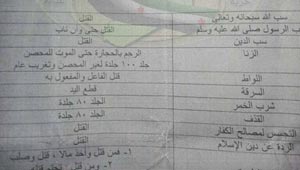 سب الله سبحانه وتعالى القتل
سب الرسول صلى الله عليه وسلم القتل حتى وإن تاب
سب الدين القتل
الزنا الرجم بالحجارة حتى الموت للمحصن
جلد ١٠٠ جلدة لغير المحصن وتغريب عام
اللواط قتل الفاعل والمفعول به
السرقة قطع اليد
شرب الخمر الجلد ٨٠ جلدة
القذف الجلد ٨٠ جلدة
التجسس لمصالح الكفار القتل
الردة عن دين الإسلام القتل
١- قتل وأخذ مالا ، قتل وصلب
٢- قتل